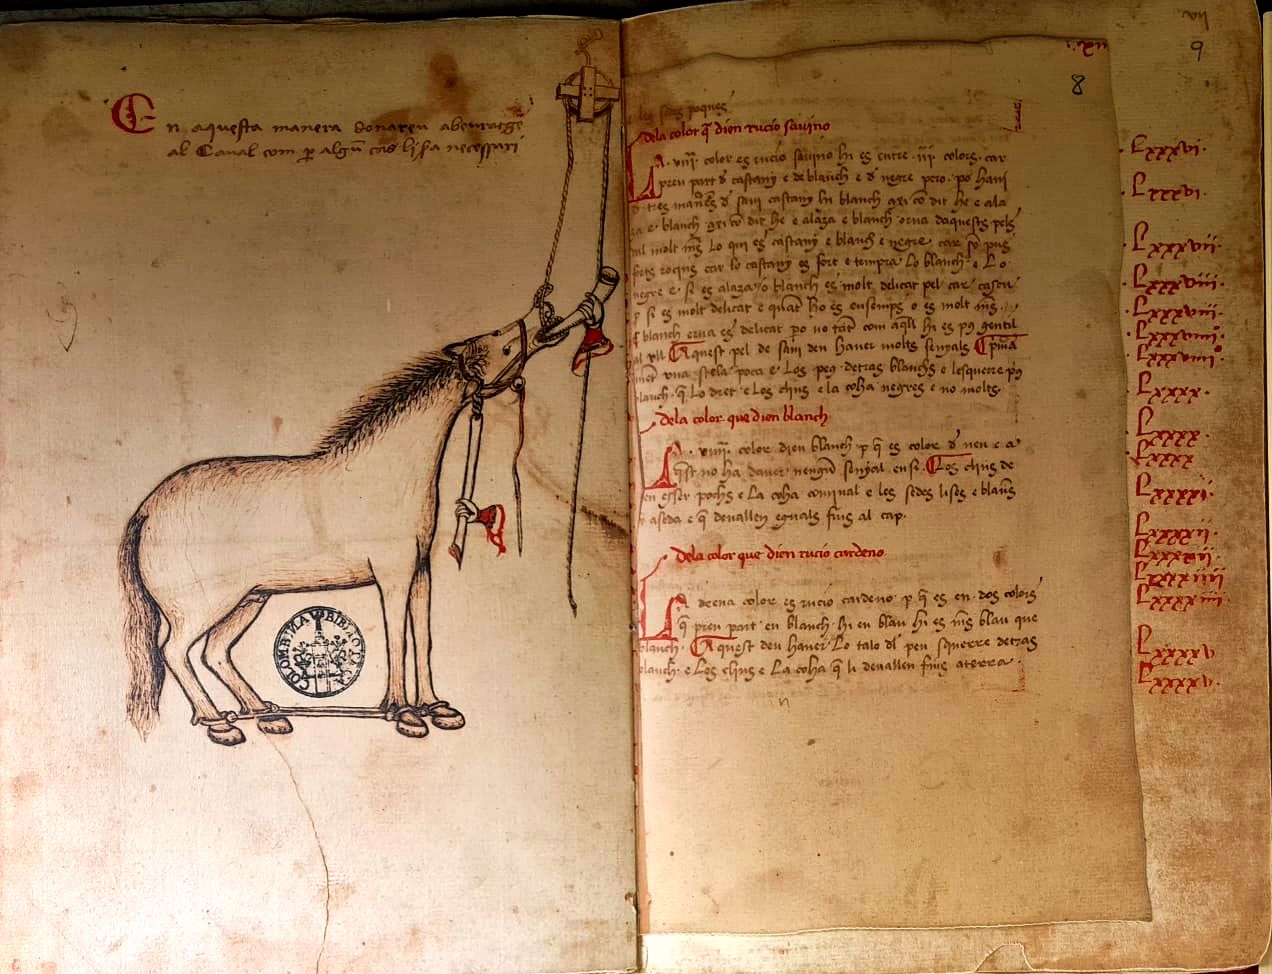 En aquesta manera donareu abeuratge
al Caual com per algun cas li sia necessari
COLOMBINA BIBLIOTECA
VII
9
8
. XII
dela color q̃ dien rucio sauino
LA . VIIIᵃ color es rucio sauino hi es entre . III . colors . car
pren part de castany e de blanch e de negre pero . po hani
tal molt mes Lo qui es castany e blanch e negre . car son pus
forts rocins car lo castany es fort e tempra Lo blanch . e Lo
negre e . si es alaza / o blanch es molt delicat pel car cascu
si es molt delicat e quant ho es ensemps o es molt mes
blanch erua es delicat po no tant com aquell hi es pus gentil
Aquest pel de saui deu hauer molts senyals Cprima
ment vna stela poca e . Los peus . detras blanchs e lesquerre pus
blanch . q̃ Lo dret . e Los clins e la coha negres e no molts .
dela color que dien blanch
LA . VIIIIᵃ . color dien blanch p q̃ es color de neu e a
quest no ha dauer nengun senyal en si . Los clins de
uen esser pochs e La coha cominal e les sedes lises e blans
aseda e q̃ deuallen eguals fins al cap .
dela color que dien rucio cardeno
LA deena color es rucio cardeno . p q̃ es en . dos colors
q̃ pren part en blanch . hi en blau hi es mes blau que
blanch . Aquest deu hauer Lo talo del peu squerre detras
blanch . e Los clins e La coha q̃ li deuallen fins aterra .
. Lxxxvi .
. Lxxxvi .
. Lxxxvii .
. Lxxxviii .
. Lxxxviii .
. Lxxxviiii .
. Lxxxviiii .
. Lxxxx .
. Lxxxx .
. Lxxxx
. Lxxxxi .
. Lxxxxii .
. Lxxxxii .
. Lxxxxiiii
. Lxxxxiii .
. Lxxxxv
. Lxxxxv .